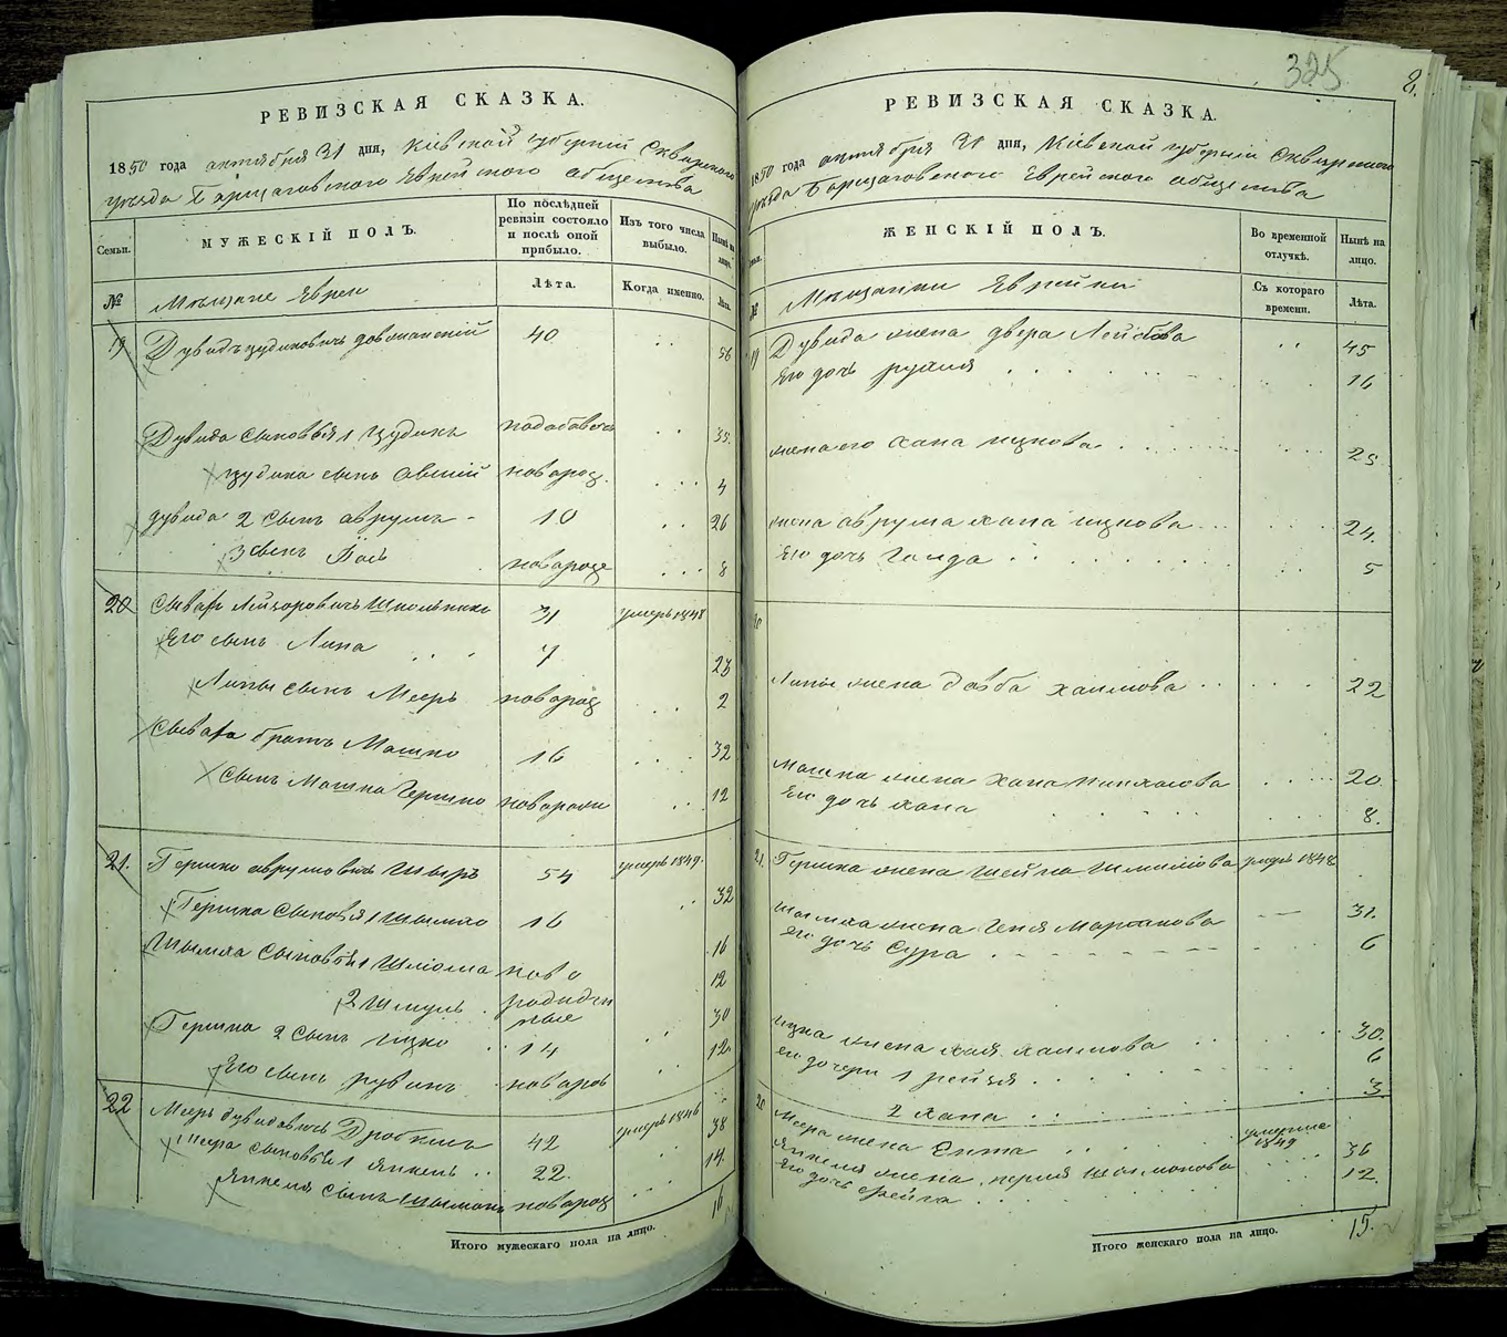 РЕВИЗСКАЯ СКАЗКА.
1850 года октября 31 дня, Кіевской губерніи Сквирского
уезда Борщаговского Еврейского общества
Семьи.
МУЖЕСКІЙ ПОЛЪ.
По послѣдней ревизіи состояло и послѣ оной прибыло.
Изъ того числа выбыло.
Нынѣ на лицо.
№
Мещане Евреи
Лѣта.
Когда именно.
Лѣта.
19 Дувидъ Иудиковичъ 40 56
Дувида сыновья 1 Иудикъ 35.
Иудика сынъ новорож. 4
дувида 2 сынъ аврумъ 10 26
3 сынъ новорож 8
20 Лейзоровичъ Школьник 31 умеръ 1848
Его сынъ Липа 7 23
Липы сынъ Мееръ новорож 2
братъ Мошко 16 32
сынъ Мошка Гершко новорожд 12
21. Гершко аврумовичъ 54 умеръ 1849.
Гершка сыновья 1 Шымко 16 32
сыновья 1 Шлиома ново 16
2 Шмуль родиден 12
ные
Гершка 2 сынъ Ицко 14 30
Его сынъ рувинъ новорож 12
22 Мееръ дувидовичъ 42 умеръ 1846
Меера сыновья 1 Янкель 22. 38
Янкеля сынъ новорож 14.
16
Итого мужескаго пола на лицо.
325
8.
РЕВИЗСКАЯ СКАЗКА.
1850 года октября 31 дня, Кіевской губерніи Сквирского
уезда Борщаговского Еврейского общества
Семьи.
ЖЕНСКІЙ ПОЛЪ.
Во временной отлучкѣ.
Нынѣ на лицо.
№
Мещанки Еврейки
Съ котораго времени.
Лѣта.
19 Дувида жена двера Лейбова 45
Его дочь рухля 16
жена его хана ицкова 25
жена аврума хана ицкова 24.
Его дочь 5
20
Липы жена хаимова 22
Мошка жена хана 20
Его дочь хана 8.
21. Гершка жена Шейна умерла 1848
жена Геня 31.
Его дочь Сура 6
Ицка жена хая хаимова 30.
его дочери 1 рейзя 6
2 хана 3
22 Меера жена Ента умершая
1849
Янкеля жена перля 36
Его дочь фейга 12.
15.
Итого женскаго пола на лицо.